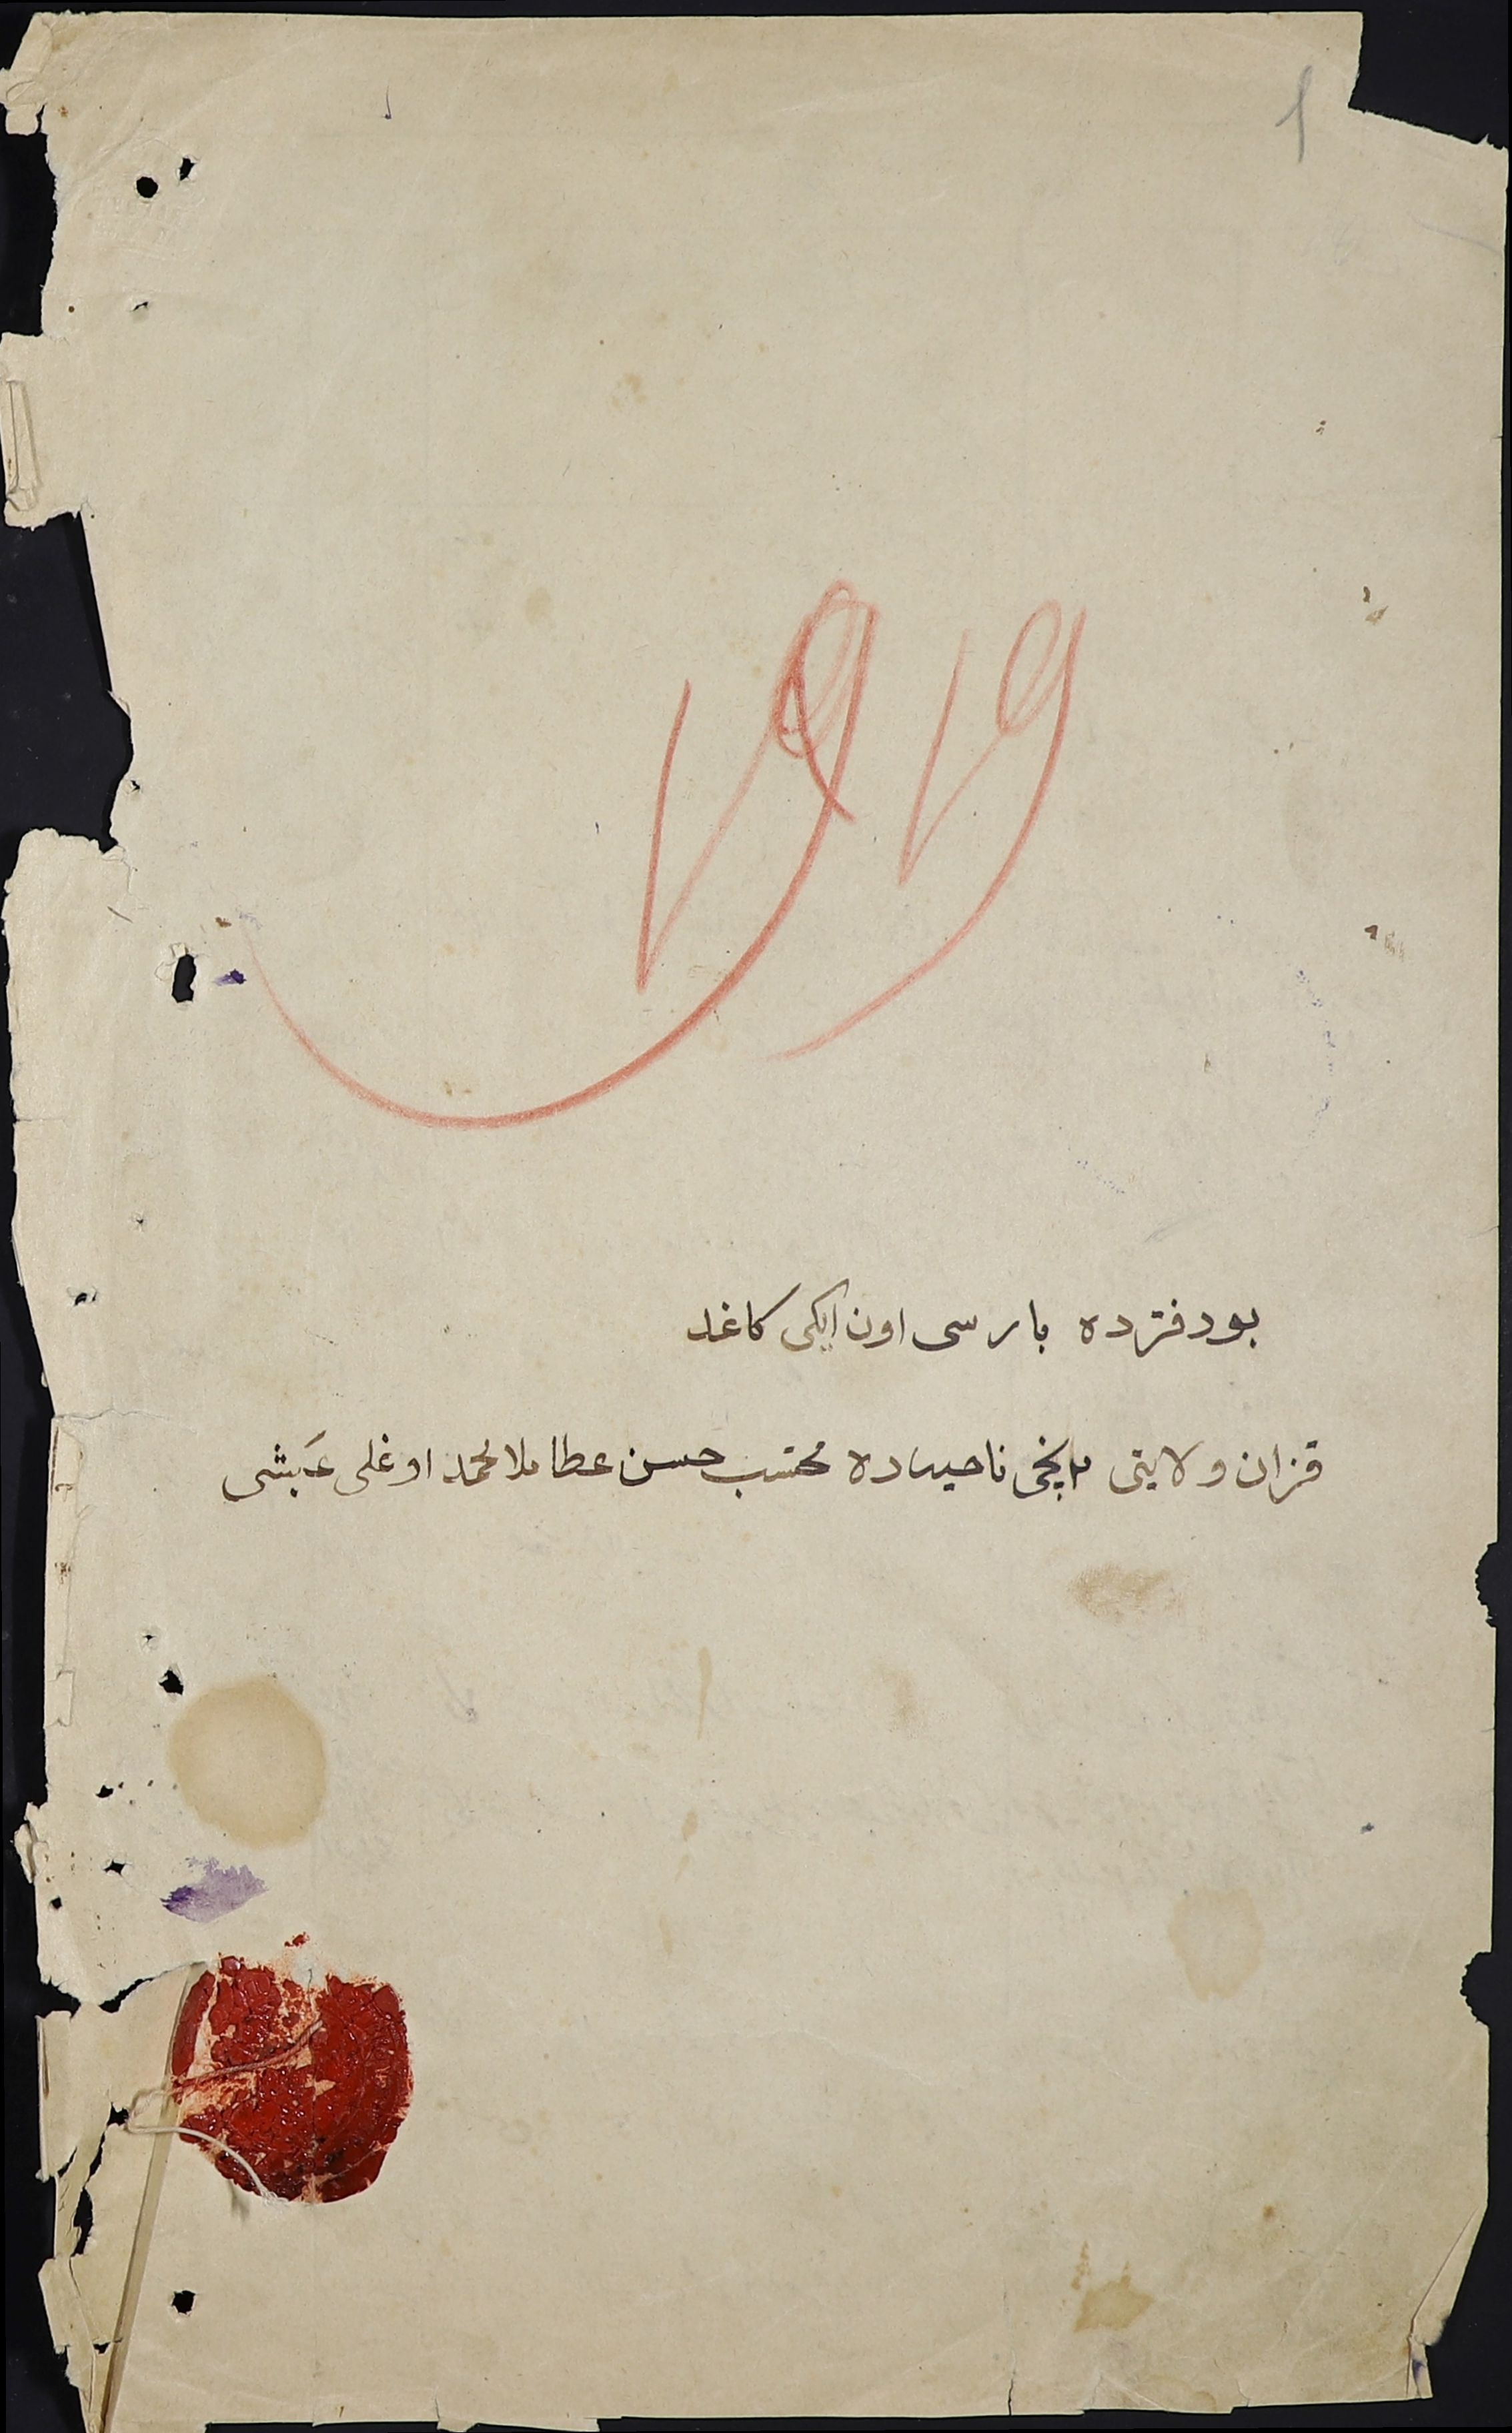 1
بو دفترده بارسی اون ایکی کاغد
قزان ولایتی ٢ ٻخی ناحیه‌ده محتسب حسن عطا ملا محمد اوغلی عبشی